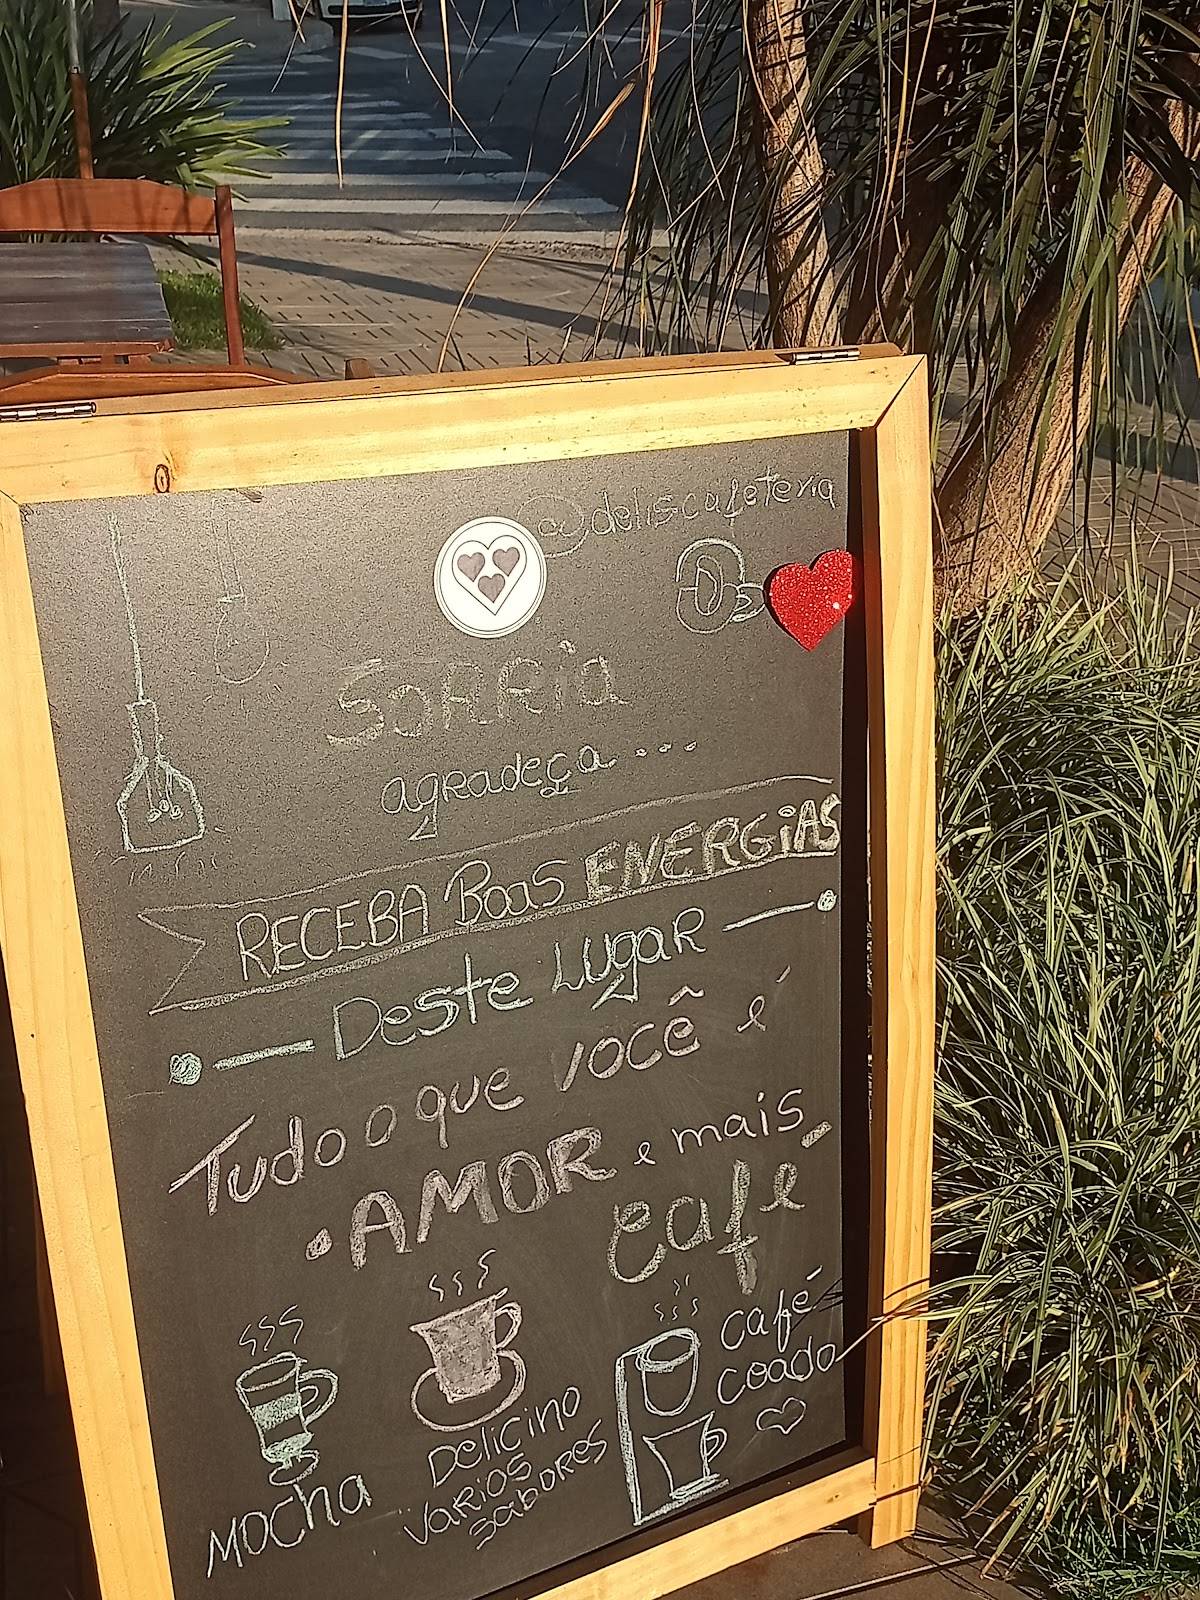 @deliscafeteria
SORRia
agradeça...
RECEBA Boas ENERGiAS
Deste Lugar
Tudo o que você é
AMOR e mais
café
MOCha
Delicino
varios
sabores
café
coado